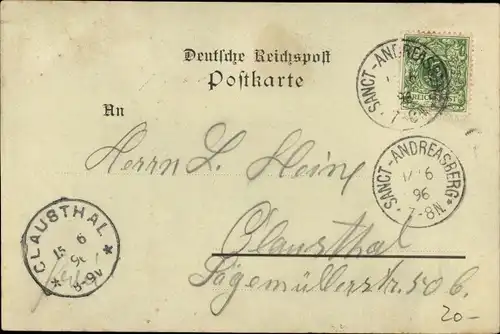 Deutsche Reichspost
Postkarte
SANCT-ANDREASBERG
6
96
7-8N
An
Herrn L. Heine
SANCT-ANDREASBERG
6
96
7-8N.
Clausthal
Sägemüllerstr. 506.
CLAUSTHAL
15 6
20-